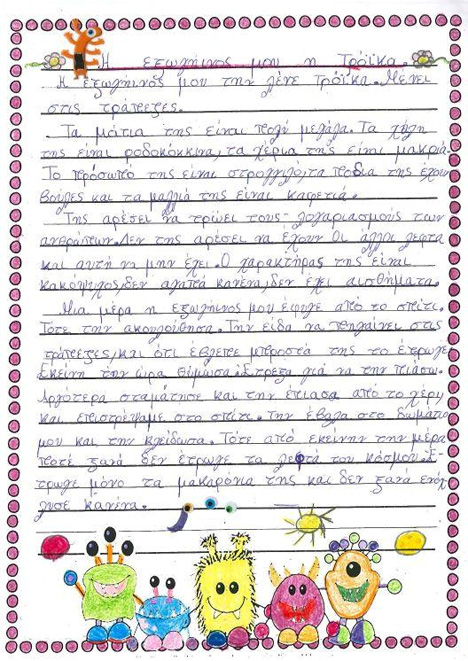 Η εξωγήινος μου η Τρόικα.
Η εξωγήινος μου την λένε Τρόικα. Μένει
στις τράπεζες.
Τα μάτια της είναι πολύ μεγάλα. Τα χείλη
της είναι ροδοκόκκινα, τα χέρια της είναι μακριά.
Το πρόσωπό της είναι στρογγιλό, τα πόδια της έχουν
βούλες και τα μαλλιά της είναι καφετιά.
Της αρέσει να τρώει τους λογαριασμούς των
ανθρώπων. Δεν της αρέσει να έχουν οι άλλοι λεφτα
και αυτή να μην έχει. Ο χαρακτήρας της είναι
κακόψυχος, δεν αγαπά κανένα, δεν έχει αισθήματα.
Μια μέρα η εξωγήινος μου έφυγε από το σπίτι.
Τότε την ακολούθησα. Την είδα να πηγαίνει στις
τράπεζες, και ότι έβλεπε μπροστά της το έτρωγε.
Εκείνη την ώρα θύμωσα. Έτρεξα γιά να την πιάσω.
Αργότερα σταμάτησε και την έπιασα από το χέρι
και επιστρέψαμε στο σπίτι. Την έβαλα στο δωμάτιο
μου και την κλείδωσα. Τότε από εκείνην την μέρα
ποτέ ξανά δεν έτρωγε τα λεφτά του κόσμου. Έ-
τρωγε μόνο τα μακαρόνια της και δεν ξανά ενόχ
λησε κανένα.